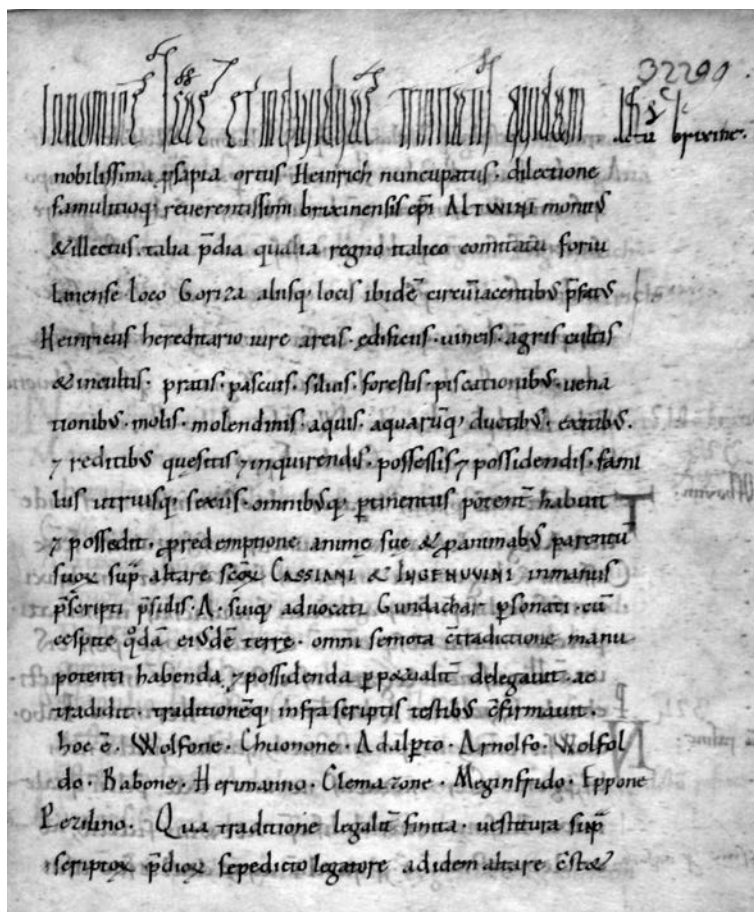 In nomine sc̄ę et indiuiduę trinitatis quidam
32290.
brixine.
nobilissima ꝓsapia ortus Heinrich nuncupatus. dilectione
famulitioq; reuerentissimi brixinensis ep̄i ALTWINI monitus
& illectus. talia p̄dia qualia regno italico comitatu foriu
Linense Loco Goriza aliisq; locis ibidē circūiacentibus p̄fatus
Heinricus hereditario iure areis. edificiis. uineis. agris cultis
& incultis. pratis. pascuis. siluis. forestis. piscationibus. uena
tionibus. molis. molendinis. aquis. aquarūq; ductibus. exitibus.
⁊ reditibus quesitis ⁊ inquirendis. possessis ⁊ possidendis. fami
liis utriusq; sexus. omnibusq; ꝑtinentiis potent̄ habuit
⁊ possedit. ꝓ redemptione animę suę & ꝓ animabus parentū
suoꝝ sup̄ altare sc̄oꝝ CASSIANI & INGENUUINI in manus
p̄scripti p̄sidis. A. suiq; aduocati Gundachar ꝑsonati. cū
cespite q̊dā eiusdē terrę. omni semota c̄tradictione manu
potenti habenda ⁊ possidenda ꝑpetualit̄ delegauit. ac
tradidit. traditionēq; infra scriptis testibus c̄firmauit.
hoc ē. Wolfone. Chuonone. Adalꝑto. Arnolfo. Wolfol
do. Babone. Herimanno. Clemazone. Meginfrido. Eppone
Pezilino. Qua traditione legalit̄ finita. uestitura sup̄
scriptoꝝ p̄dioꝝ sepedicto legatore ad idem altare c̄sta&